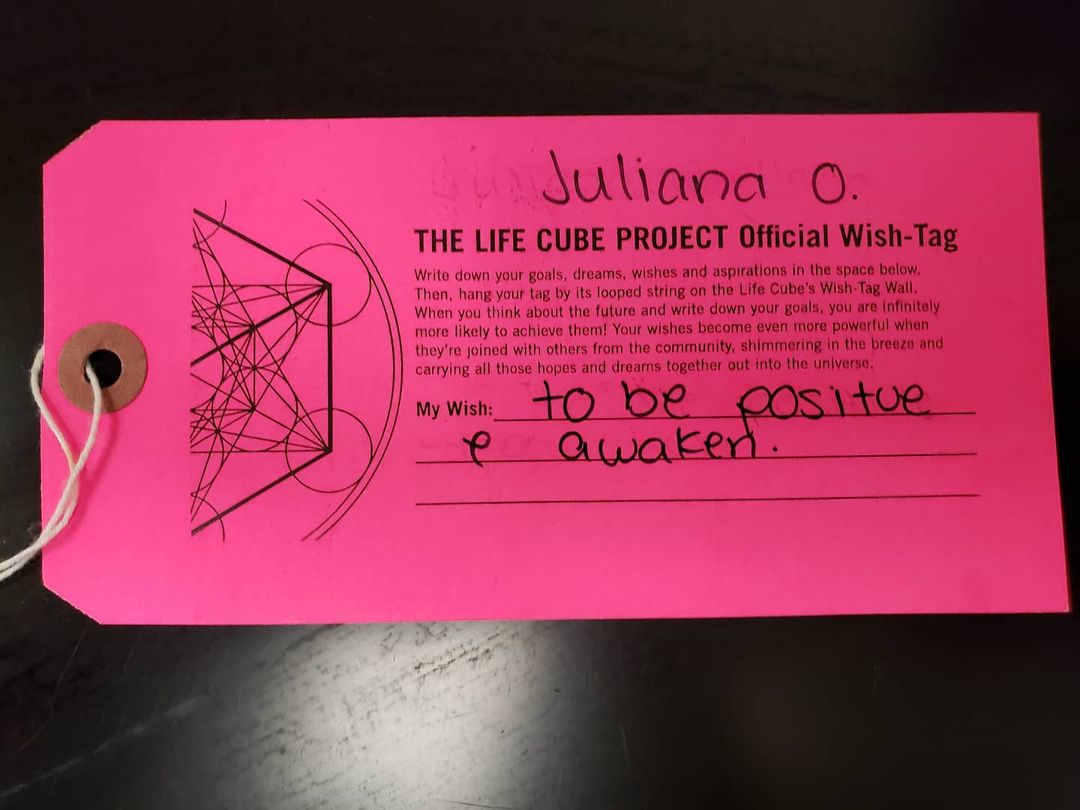 Juliana O.
THE LIFE CUBE PROJECT Official Wish-Tag
Write down your goals, dreams, wishes and aspirations in the space below.
Then, hang your tag by its looped string on the Life Cube's Wish-Tag Wall.
When you think about the future and write down your goals, you are infinitely
more likely to achieve them! Your wishes become even more powerful when
they're joined with others from the community, shimmering in the breeze and
carrying all those hopes and dreams together out into the universe.
My Wish: to be positue
e awaken.